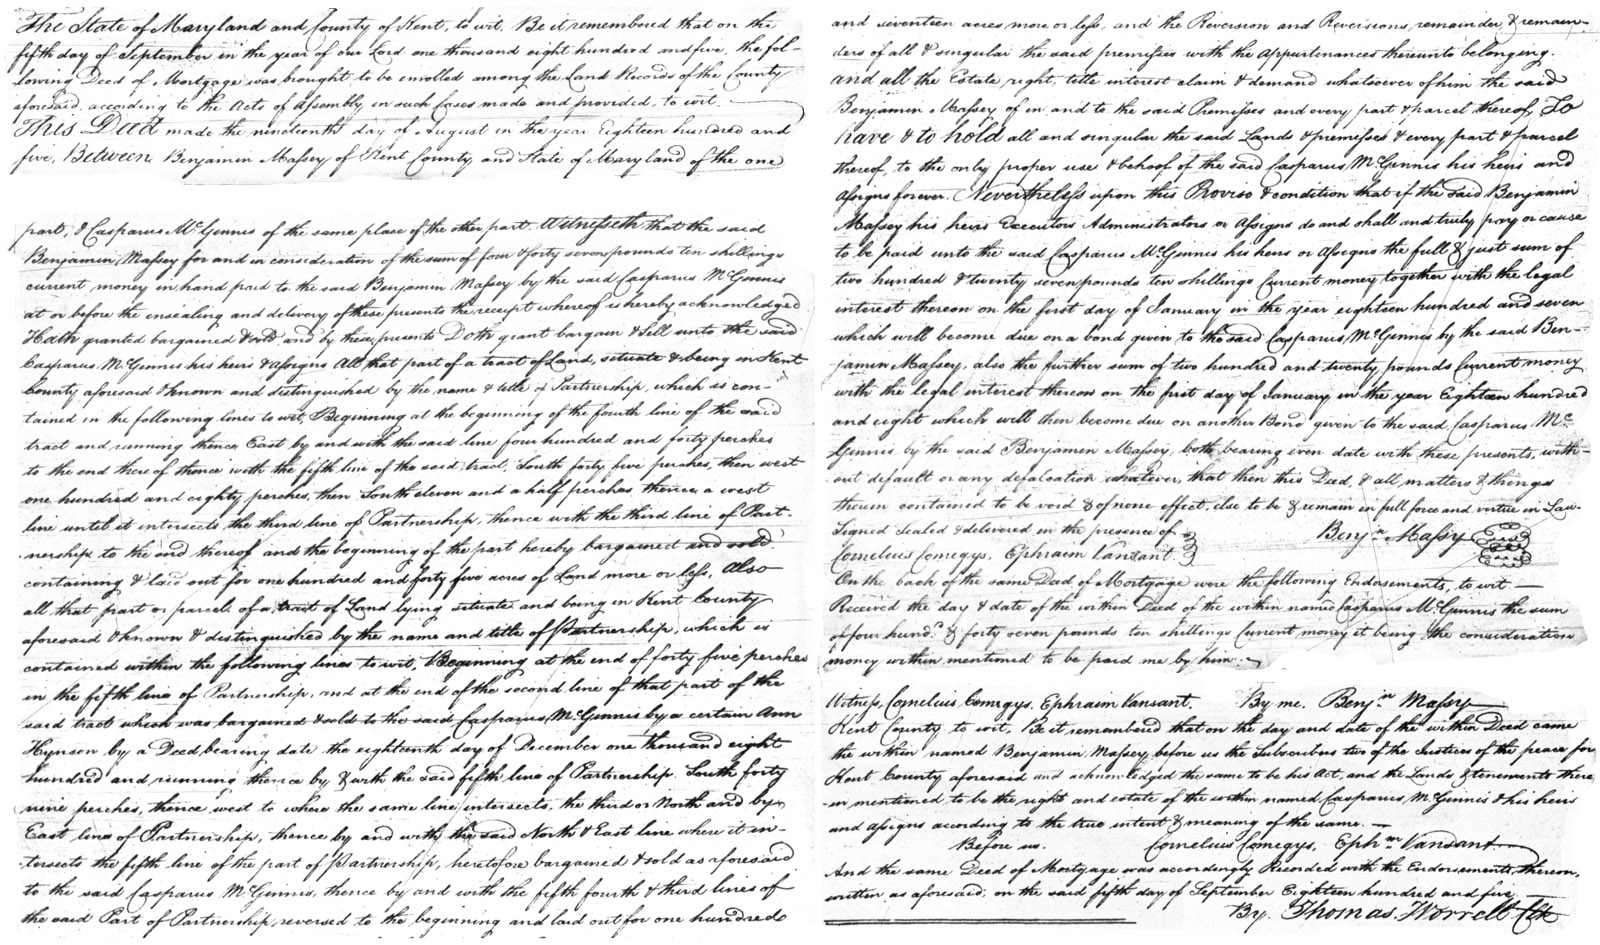 The State of Maryland and County of Kent, to wit. Be it remembered that on the
fifth day of September in the year of our Lord one thousand eight hundred and five, the fol-
lowing Deed of Mortgage was brought to be enrolled among the Land Records of the County
aforesaid, according to the Acts of Assembly in such Cases made and provided, to wit.
This Deed made the nineteenth day of August in the year Eighteen hundred and
five, Between Benjamin Massey of Kent County and State of Maryland of the one
part, & Casparus McGinnis of the same place of the other part. Witnesseth that the said
Benjamin Massey for and in consideration of the sum of four & forty seven pounds ten shillings
current money in hand paid to the said Benjamin Massey by the said Casparus McGinnis
at or before the ensealing and delivery of these presents the receipt whereof is hereby acknowledged
Hath granted bargained & sold and by these presents Doth grant bargain & Sell unto the said
Casparus McGinnis his heirs & Assigns All that part of a tract of Land, situate & being in Kent
County aforesaid & known and distinguished by the name & title of Partnership, which is con-
tained in the following lines to wit, Beginning at the beginning of the fourth line of the said
tract and running thence East by and with the said line four hundred and forty perches
to the end thereof thence with the fifth line of the said tract, South forty five perches, then west
one hundred and eighty perches, then South eleven and a half perches thence a west
line until it intersects the third line of Partnership, thence with the third line of Part-
nership to the end thereof and the beginning of the part hereby bargained and sold
containing & laid out for one hundred and forty five acres of Land more or less, Also
all that part or parcel of a tract of Land lying situate and being in Kent County
aforesaid & known & distinguished by the name and title of Partnership, which is
contained within the following lines to wit, Beginning at the end of forty five perches
in the fifth line of Partnership, and at the end of the second line of that part of the
said tract which was bargained & sold to the said Casparus McGinnis by a certain Ann
Hynson by a Deed bearing date the eighteenth day of December one thousand eight
hundred and running thence by & with the said fifth line of Partnership South forty
nine perches, thence west to where the same line intersects, the third or North and by
East line of Partnership, thence by and with the said North & East line where it in-
tersects the fifth line of the part of Partnership, heretofore bargained & sold as aforesaid
to the said Casparus McGinnis, thence by and with the fifth fourth & third lines of
the said Part of Partnership, reversed to the beginning and laid out for one hundred
and seventeen acres more or less, and the Reversion and Reversions, remainder & remain-
ders of all & singular the said premisses with the Appurtenances thereunto belonging.
and all the Estate right, title interest claim & demand whatsoever of him the said
Benjamin Massey of in and to the said Premisses and every part & parcel thereof, To
have & to hold all and singular the said Lands & premisses & every part & parcel
thereof, to the only proper use & behoof of the said Casparus McGinnis his heirs and
Assigns forever. Nevertheless upon this Proviso & condition that if the said Benjamin
Massey his heirs Executors Administrators or Assigns do and shall and truly pay or cause
to be paid unto the said Casparus McGinnis his heirs or Assigns the full & just sum of
two hundred & twenty seven pounds ten shillings Current money together with the legal
interest thereon on the first day of January in the year eighteen hundred and seven
which will become due on a bond given to the said Casparus McGinnis by the said Ben-
jamin Massey, also the further sum of two hundred and twenty pounds Current money
with the legal interest thereon on the first day of January in the year Eighteen hundred
and eight which will then become due on another Bond given to the said Casparus Mc
Ginnis by the said Benjamin Massey, both bearing even date with these presents, with-
out default or any defalcation whatever, that then this Deed, & all matters & things
therein contained to be void & of none effect, else to be & remain in full force and virtue in Law.
Signed Sealed & delivered in the presence of
Benjn Massy
Cornelius Comegys, Ephraim Vansant.
On the back of the same Deed of Mortgage were the following Endorsements, to wit
Received the day & date of the within Deed of the within named Casparus McGinnis the sum
of four hund.d & forty seven pounds ten shillings Current money it being the consideration
money within mentioned to be paid me by him.
Witness, Cornelius Comegys. Ephraim Vansant. By me. Benjn Massy
Kent County to wit, Be it remembered that on the day and date of the within Deed came
the within named Benjamin Massey before us the Subscribers two of the Justices of the peace for
Kent County aforesaid and acknowledged the same to be his Act, and the Lands & tenements there
in mentioned to be the right and estate of the within named Casparus McGinnis & his heirs
and assigns acording to the true intent & meaning of the same.
Before us. Cornelius Comegys, Ephm Vansant
And the same Deed of Mortgage was accordingly Recorded with the Endorsements, thereon,
written as aforesaid, on the said fifth day of September Eighteen hundred and five
By. Thomas Worrell Clk